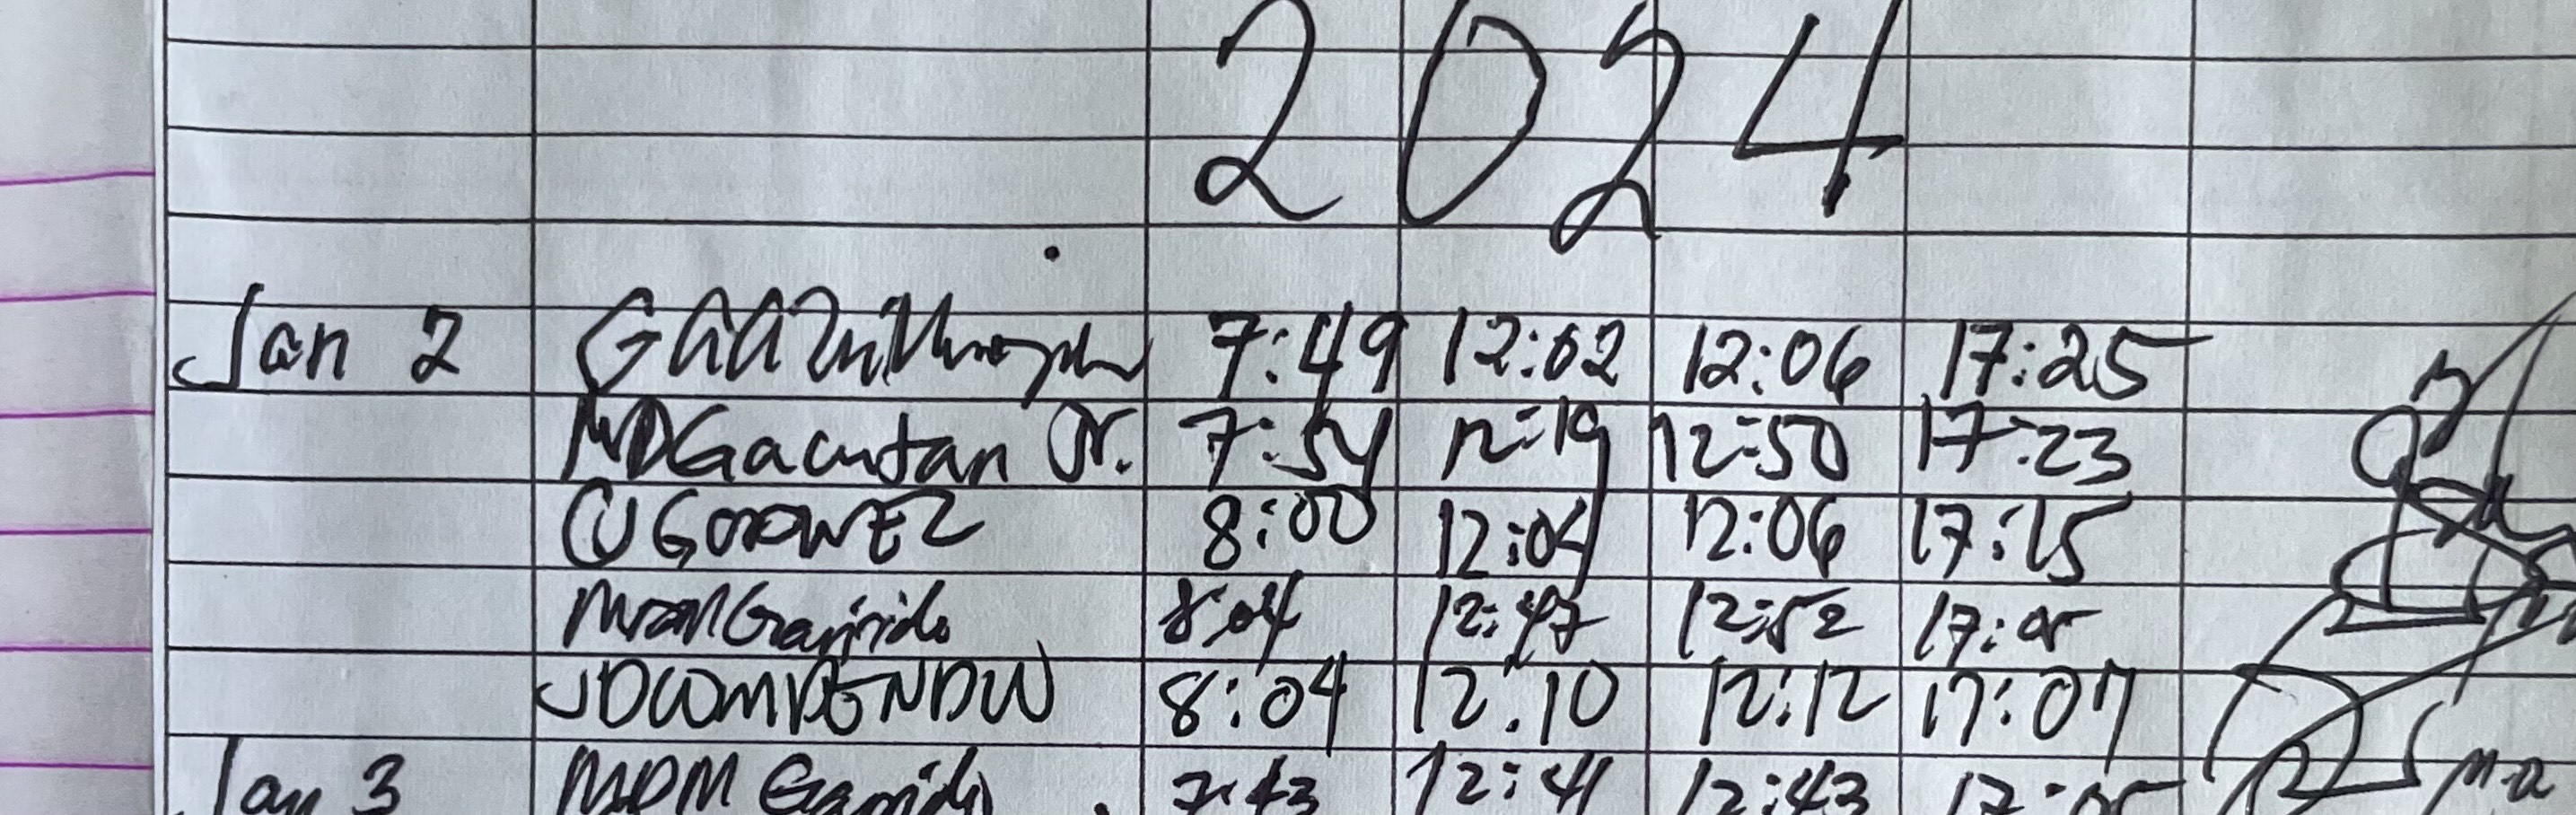 2024
Jan 2 7:49 12:02 12:06 17:25
MDGacutan Jr. 7:54 12:19 12:50 17:23
8:00 12:04 12:06 17:15
MDMGarrido 8:04 12:47 12:52 17:05
8:04 12:10 12:12 17:07
Jan 3 MDM Garrido 7:43 12:41 12:43 17:05